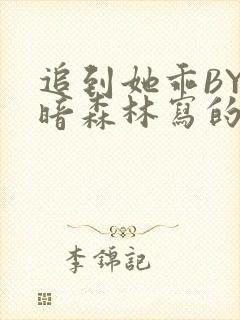 追到她乖BY
暗森林寫的
李錦記